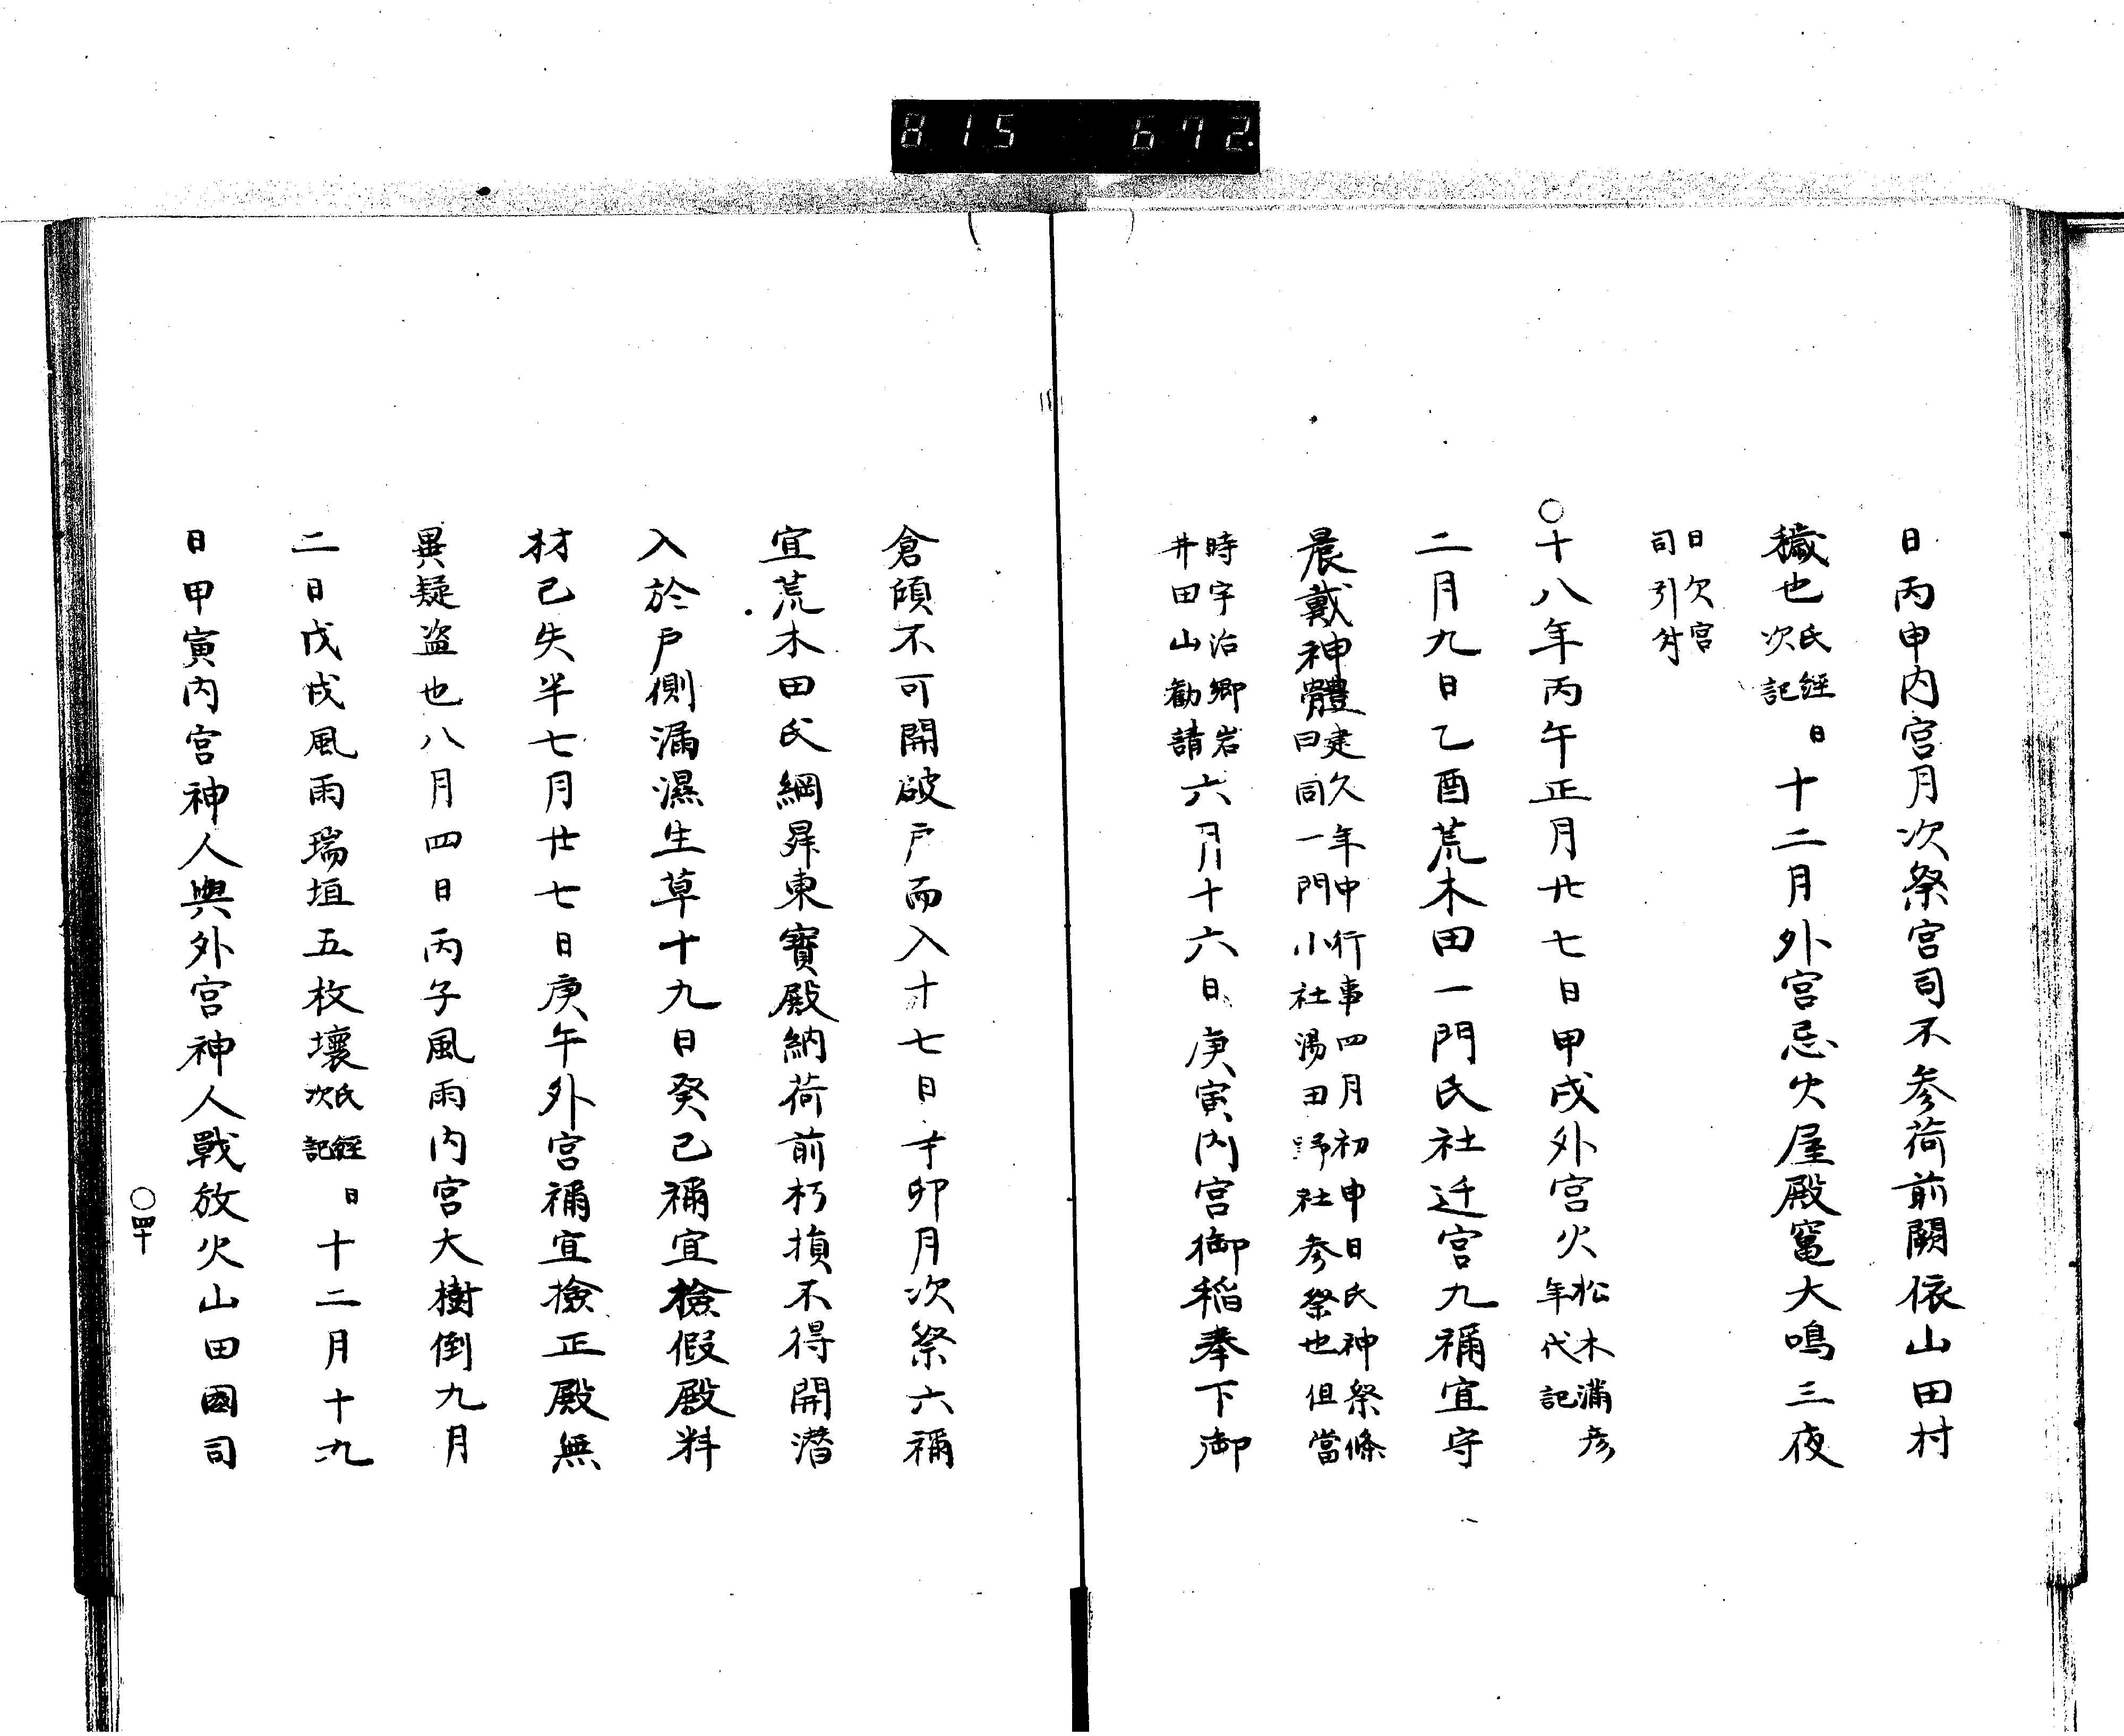 815 672.
日丙申内宮月次祭宮司不参荷前闕依山田村
穢也氏経日次記十二月外宮忌火屋殿竃大鳴三夜
日欠宮司引付
○十八年丙午正月廿七日甲戌外宮火松木満彦年代記
二月九日乙酉荒木田一門氏社迁宮九禰宜守
晨戴神體建久年中行事四月初申日氏神祭條曰同一門小社湯田野社参祭也但當
時宇治郷岩井田山勧請六月十六日庚寅内宮御稲奉下御
倉傾不可開破戸而入十七日辛卯月次祭六禰
宜荒木田氏綱昇東寳殿納荷前朽損不得開潜
入於戸側漏濕生草十九日癸巳禰宜檢假殿料
材已失半七月廿七日庚午外宮禰宜撿正殿無
異疑盗也八月四日丙子風雨内宮大樹倒九月
二日戊戌風雨瑞垣五枚壞氏経日次記十二月十九
日甲寅内宮神人與外宮神人戰放火山田國司
○四十